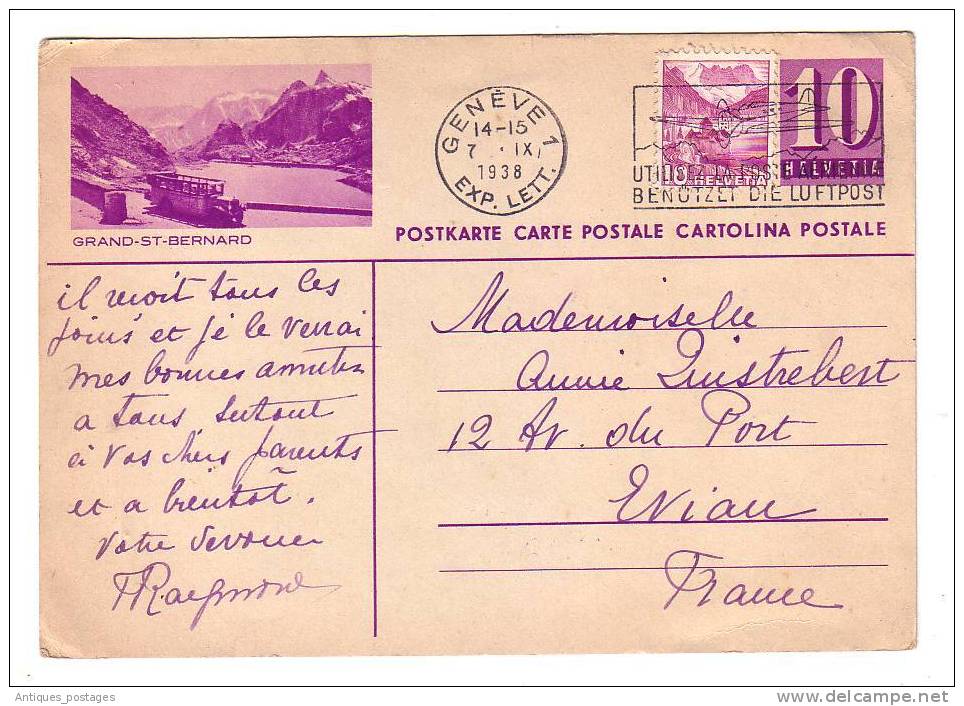 GENÈVE 1
14-15
7 . IX
1938
EXP. LETT.
10
HELVETIA
10 HELVETIA
UTILISEZ LA POSTE AERIENNE
BENÜTZET DIE LUFTPOST
GRAND-ST-BERNARD
POSTKARTE CARTE POSTALE CARTOLINA POSTALE
il tous les
et je le verrai
mes bonnes
a tous, surtout
à vos chers parents
et a bientôt.
Votre
Raymond
Mademoiselle
Annie Quistrebert
12 Av. du Port
Evian
France
Antiques_postages
delcampe.net